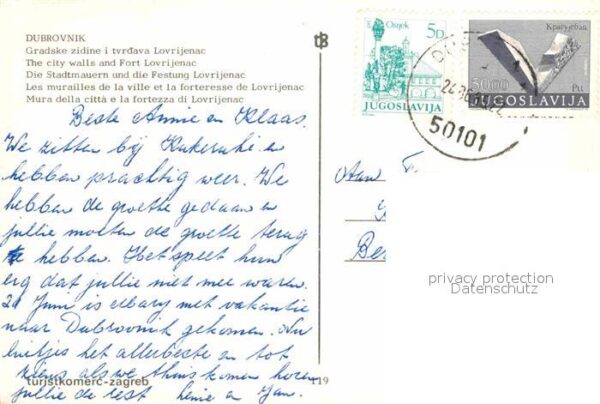 DUBROVNIK
Gradske zidine i tvrđava Lovrijenac
The city walls and Fort Lovrijenac
Die Stadtmauern und die Festung Lovrijenac
Les murailles de la ville et la forteresse de Lovrijenac
Mura della città e la fortezza di Lovrijenac
Osijek
5D
JUGOSLAVIJA
Крагујевац
5000
JUGOSLAVIJA
50101
Beste Annie en Klaas.
We zitten bij en
hebben prachtig weer. We
hebben de groette gedaan en
jullie moeten de groette terug
hebben. Het speet hun
erg dat jullie niet mee waren.
Juni is met vakantie
naar Dubrovnik gekomen. Nu
luitjes het allerbeste en tot
ziens als we thuis komen horen
jullie de rest en Jan.
Aan
turistkomerc-zagreb
119
privacy protection
Datenschutz